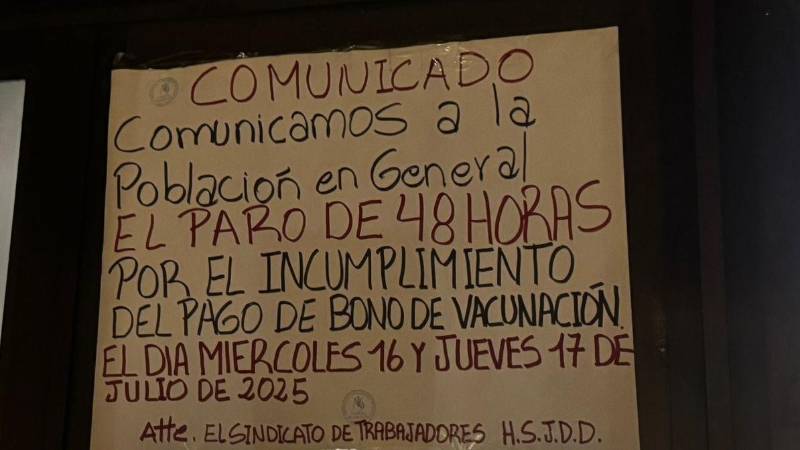 COMUNICADO
Comunicamos a la
Población en General
EL PARO DE 48 HORAS
POR EL INCUMPLIMIENTO
DEL PAGO DE BONO DE VACUNACIÓN.
EL DIA MIERCOLES 16 Y JUEVES 17 DE
JULIO DE 2025
Atte. EL SINDICATO DE TRABAJADORES H.S.J.D.D.